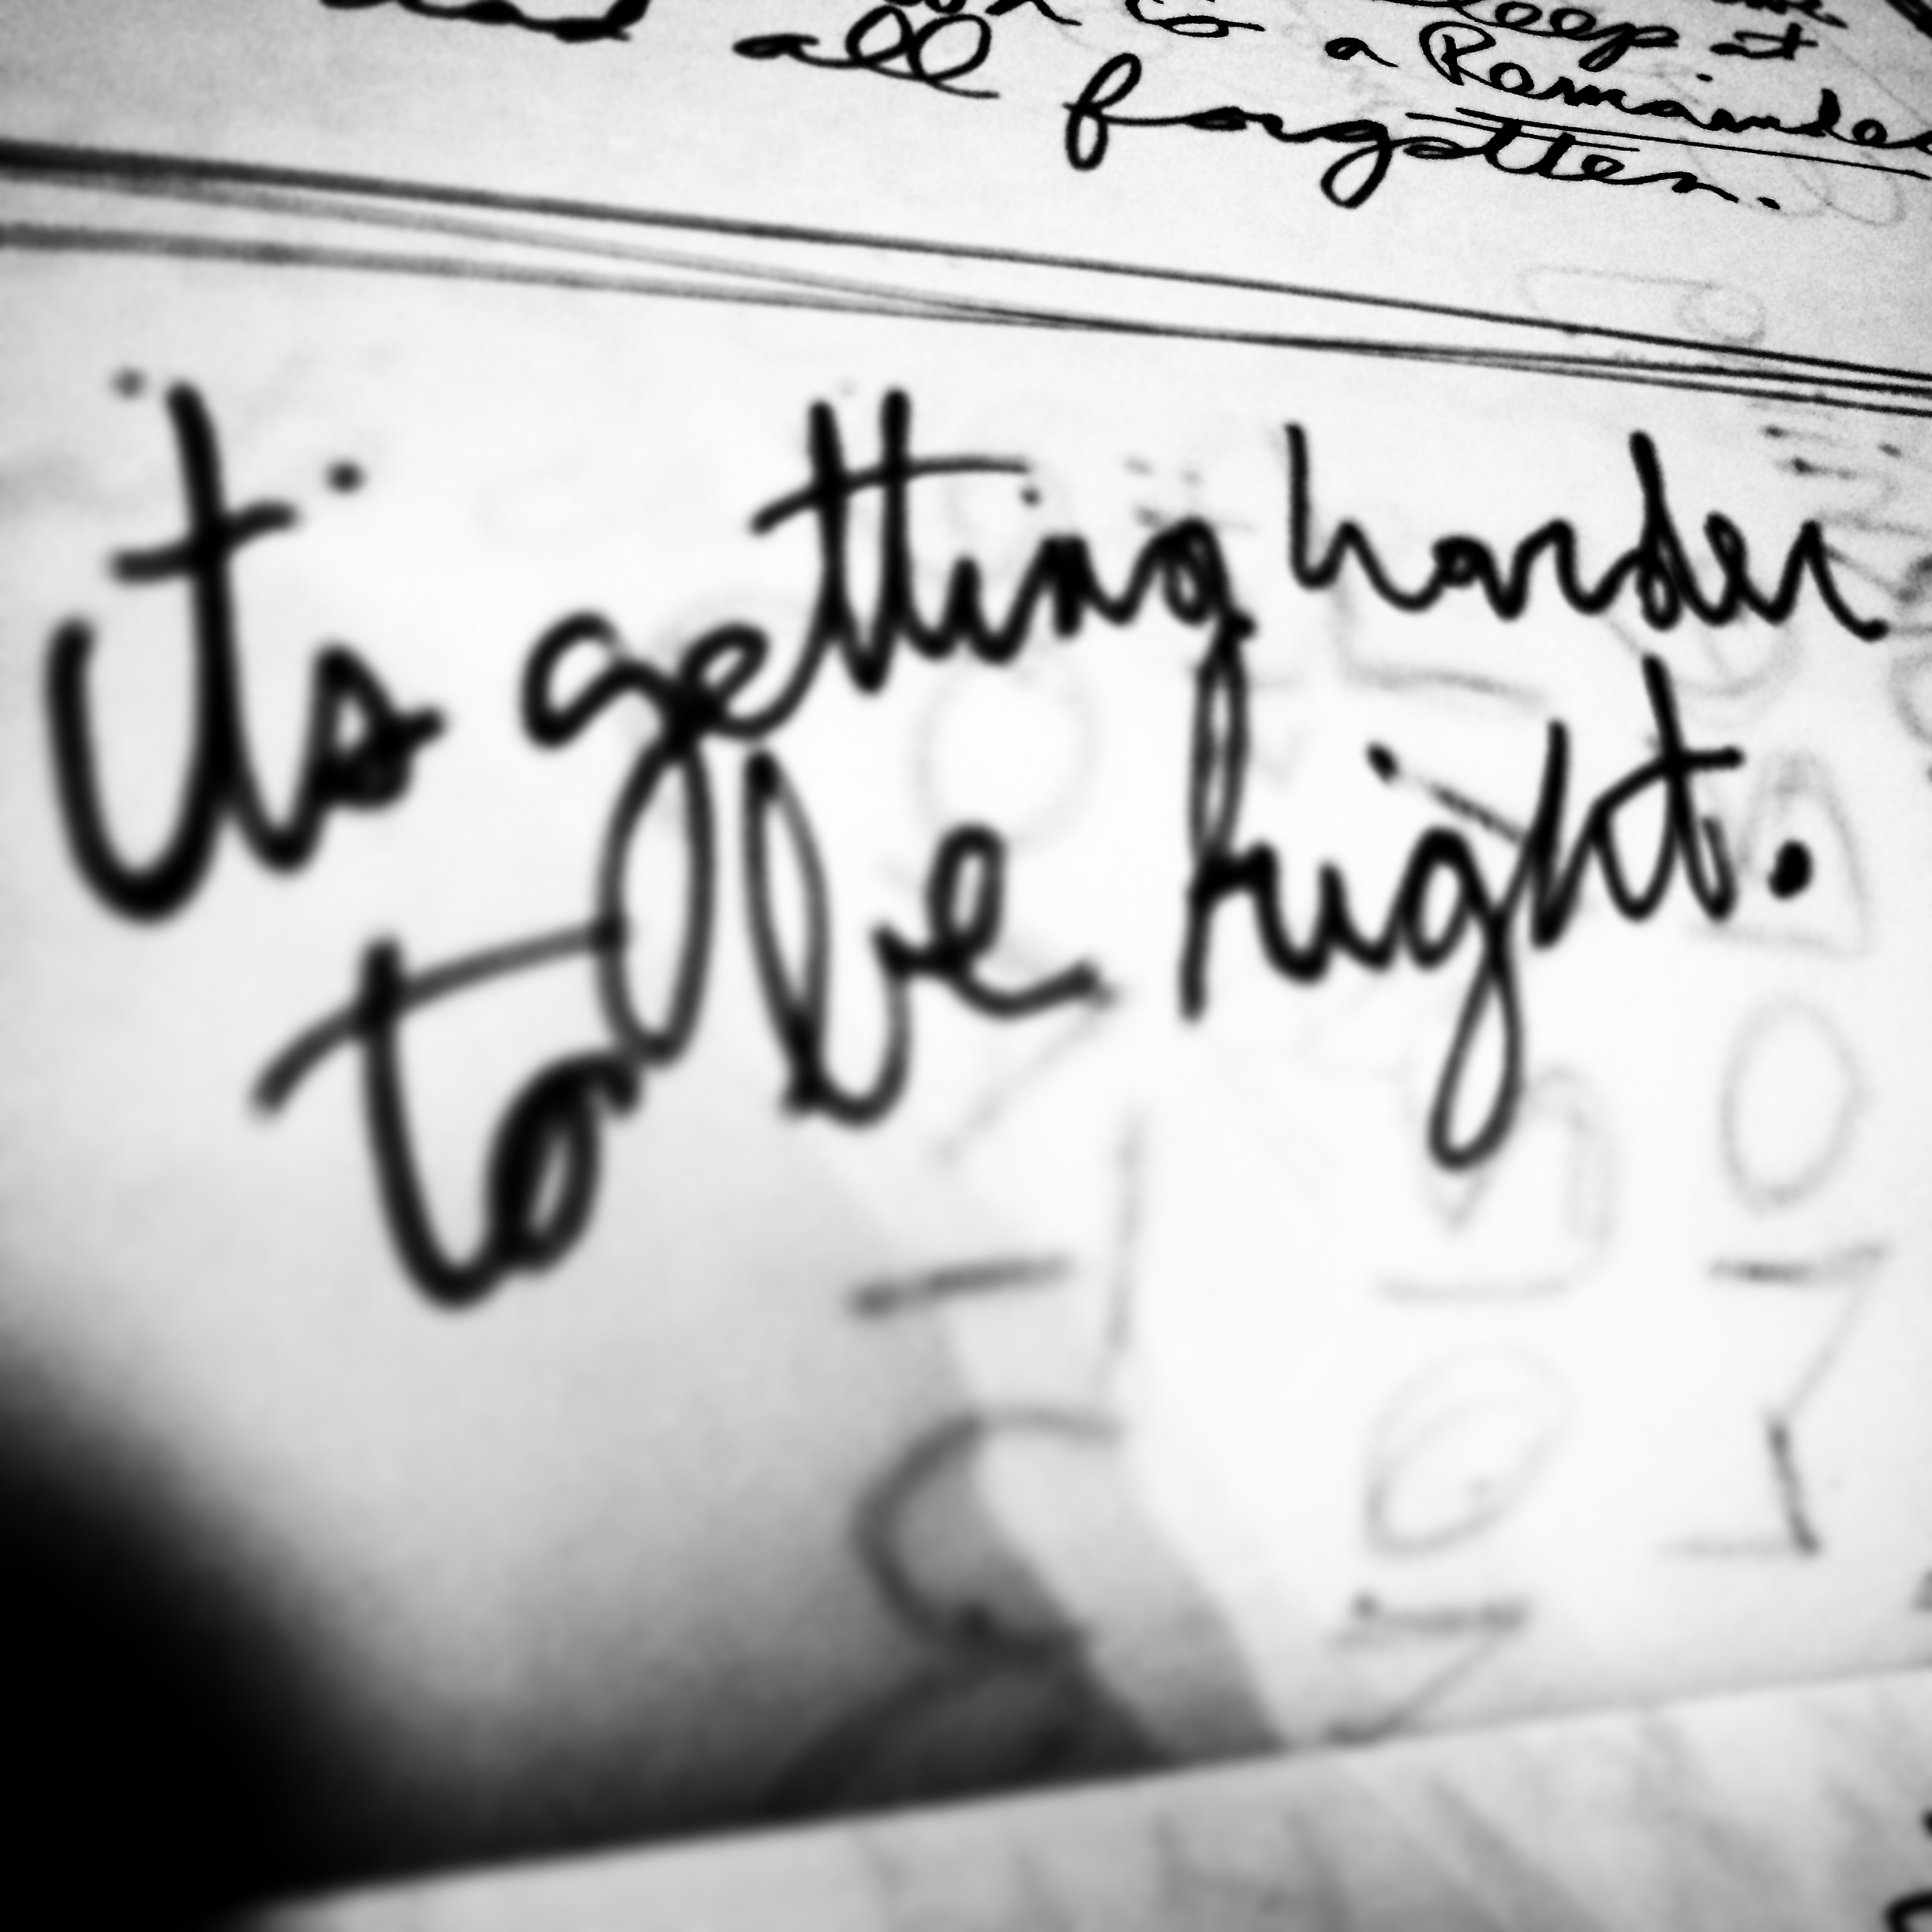 sleep at
is a Remainder
all forgotten.
it's getting harder
to be right.